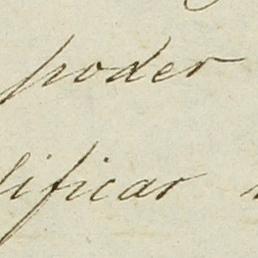 poder
lificar